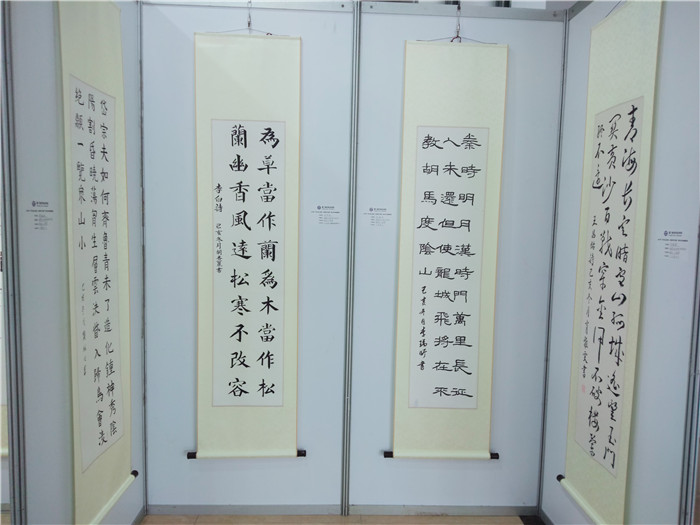 岱宗夫如何齊魯青未了造化鍾神秀陰
陽割昏曉蕩胷生層雲決眥入歸鳥會淩
絶顛一覽衆山小
為草當作蘭為木當作松
蘭幽香風遠松寒不改容
李白詩 己亥冬月
秦時明月漢時門萬里長征
人未還但使龍城飛將在不
教胡馬度陰山
青海長雲暗雪山孤城遙望玉門
關黃沙百戰穿金甲不破樓蘭
終不還 王昌齡詩己亥冬月